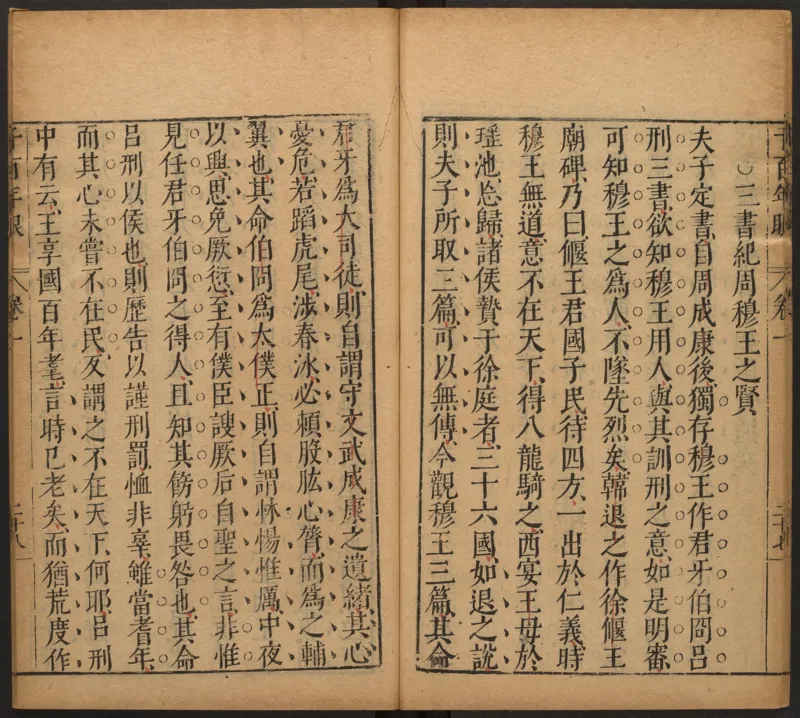 千百年眼 卷一 二十七
○三書紀周穆王之賢
夫子定書自周成康後獨存穆王作君牙伯冏呂
刑三書欲知穆王用人與其訓刑之意如是明審
可知穆王之爲人不墜先烈矣韓退之作徐偃王
廟碑乃曰偃王君國子民待四方一出於仁義時
穆王無道意不在天下得八龍騎之西宴王母於
瑤池忘歸諸侯贄于徐庭者三十六國如退之說
則夫子所取三篇可以無傳今觀穆王三篇其命
君牙爲大司徒則自謂守文武成康之遺緒其心
憂危若蹈虎尾涉春冰必賴股肱心膂而爲之輔
翼也其命伯冏爲太僕正則自謂怵惕惟厲中夜
以興思免厥愆至有僕臣諛厥后自聖之言非惟
見任君牙伯冏之得人且知其飭躬畏咎也其命
呂刑以侯也則歷告以謹刑罰恤非辜雖當耆年
而其心未嘗不在民及謂之不在天下何耶呂刑
中有云王享國百年耄言時已老矣而猶荒度作
千百年眼 卷一 二十八